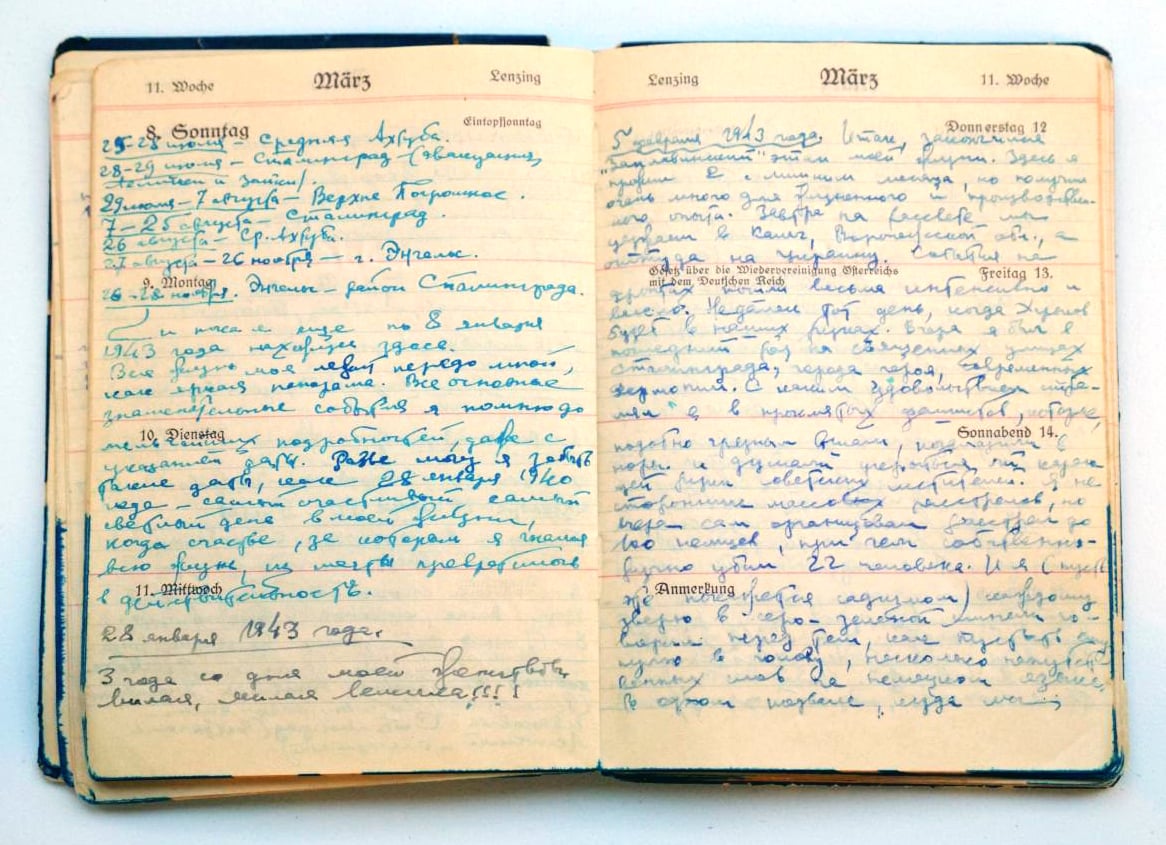 11. Woche März Lenzing
8. Sonntag Eintopfsonntag
25-28 июля – Средняя Ахтуба.
28-29 июля – Сталинград – (эвакуация
и Зайки).
29 июля – 7 августа – Верхне Погромное.
7 – 25 августа – Сталинград.
26 августа – Ср. Ахтуба.
27 августа – 26 ноября – г. Энгельс.
9. Montag
26-28 ноября. Энгельс – район Сталинграда.
и пока я еще по 8 января
1943 года нахожусь здесь.
Вся жизнь моя лежит передо мной,
как яркая панорама. Все основные
знаменательные события я помню до
10. Dienstag
мельчайших подробностей, даже с
указанием даты. Разве могу я забыть
такие даты, как 28 января 1940
года – самый счастливый самый
светлый день в моей жизни,
когда счастье, за которым я гнался
всю жизнь, из мечты превратилось
в действительность.
11. Mittwoch
28 января 1943 года.
3 года со дня моей женитьбы,
милая, милая !!!!
Lenzing März 11. Woche
Donnerstag 12
5 февраля 1943 года. Итак, закончился
этап моей жизни. Здесь я
прожил 2 с лишним месяца, но получил
очень много для жизненного и производствен-
ного опыта. Завтра на рассвете мы
уезжаем в Калач, Воронежской обл., а
оттуда на Украину. События на
Gesetz über die Wiedervereinigung Österreichs
mit dem Deutschen Reich
Freitag 13.
фронтах пошли весьма интенсивно и
весело. Недалек тот день, когда Харьков
будет в наших руках. Вчера я был в
последний раз на священных улицах
Сталинграда, города героя, современных
Фермопил. С каким удовольствием стре-
лял я в проклятых фашистов, которые,
Sonnabend 14.
подобно грязным , в
норы и думали укрыться от караю-
щей руки советских мстителей. Я не
сторонник массовых расстрелов, но
вчера сам организовал расстрел до
100 немцев, при чем собственно-
ручно убил 22 человека. И я (пусть
Anmerkung
же покажется садизмом) каждому
зверю в серо-зеленой шинели го-
ворил перед тем, как пустить ему
пулю в голову, несколько напутст-
венных слов на немецком языке.
В одном подвале, куда мы